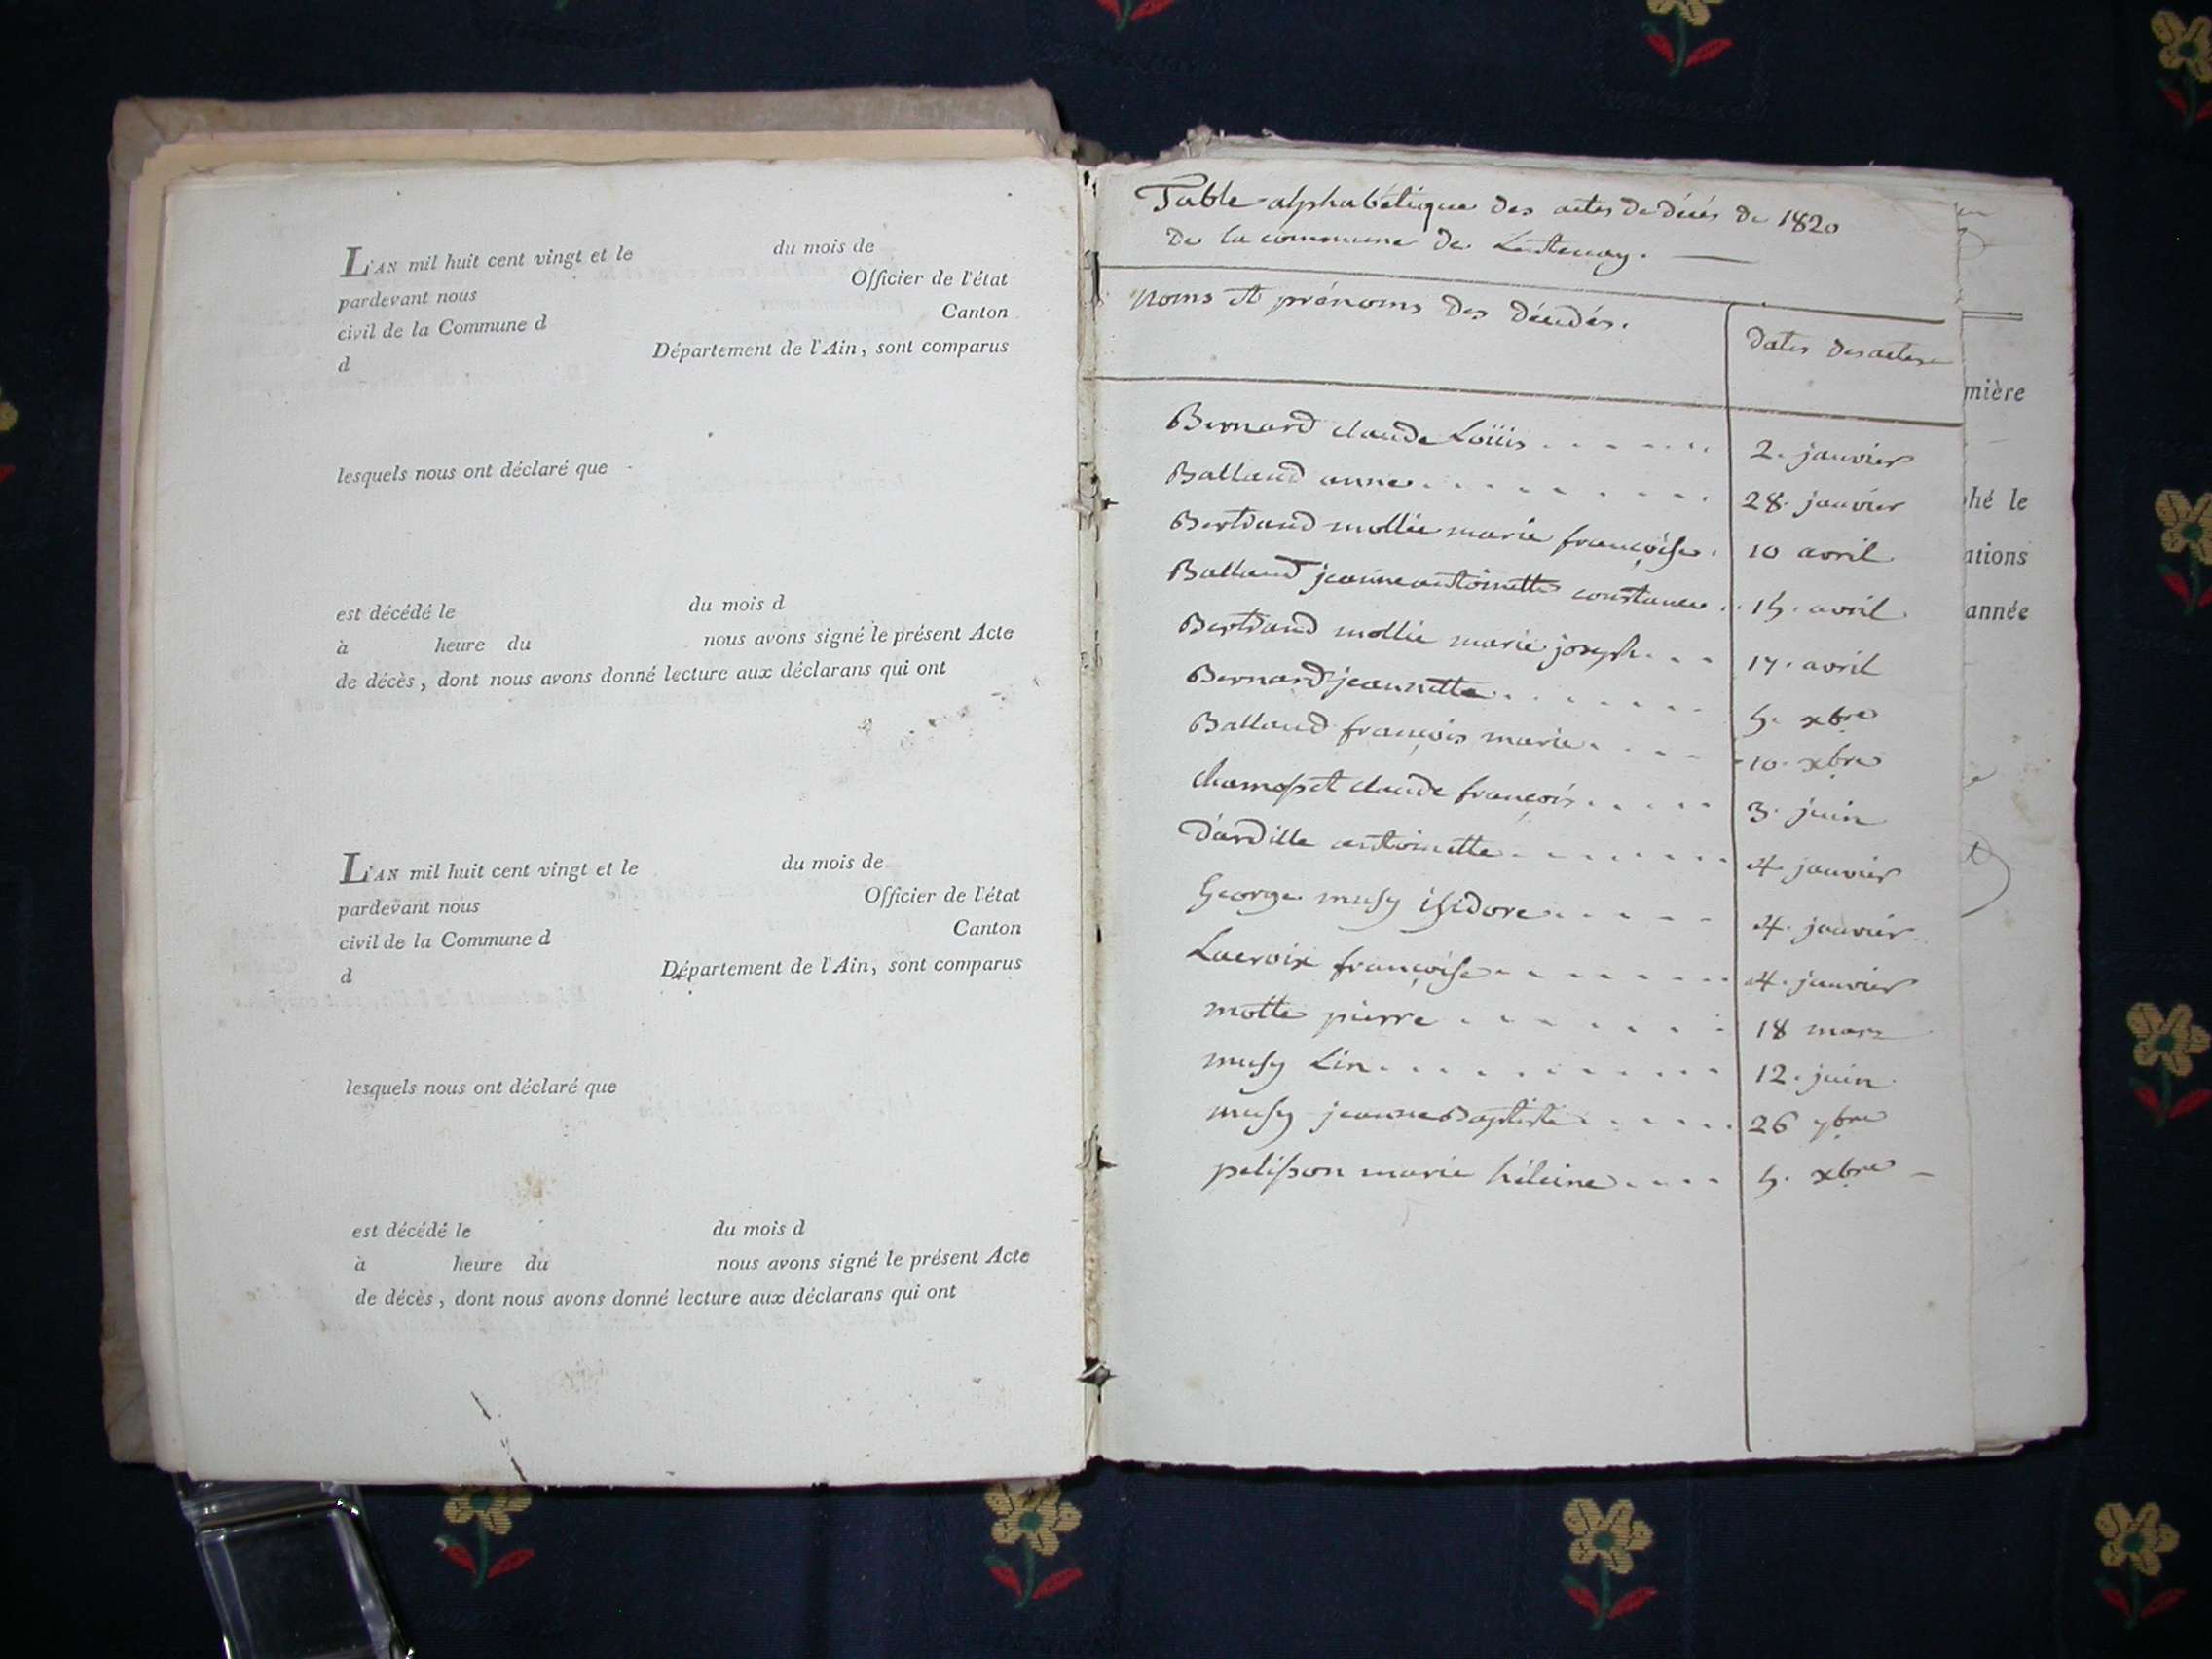 L'AN mil huit cent vingt et le du mois de
pardevant nous Officier de l'état
civil de la Commune d Canton
d Département de l'Ain, sont comparus
lesquels nous ont déclaré que
est décédé le du mois d
à heure du nous avons signé le présent Acte
de décès, dont nous avons donné lecture aux déclarans qui ont
L'AN mil huit cent vingt et le du mois de
pardevant nous Officier de l'état
civil de la Commune d Canton
d Département de l'Ain, sont comparus
lesquels nous ont déclaré que
est décédé le du mois d
à heure du nous avons signé le présent Acte
de décès, dont nous avons donné lecture aux déclarans qui ont
Table alphabétique des actes de décés de 1820
de la commune de Lantenay.
Noms et prénoms des décédés. dates des actes
Bernard claude Loüis 2. janvier
Balland anne 28. janvier
Bertrand mollie marie françoise 10 avril
Balland jeanne antoinette constance 15. avril
Bertrand mollie marie joseph 17. avril
Bernard jeannette 5. xbre
Balland françois marie 10. xbre
chamosset claude françois 3. juin
dardille antoinette 4 janvier
George musy isidore 4. janvier
Lacroix françoise 4. janvier
motte pierre 18 mars
musy Lin 12. juin
musy jeanne Baptiste 26 7bre
pelisson marie héleine 5. xbre
mière
hé le
ations
année